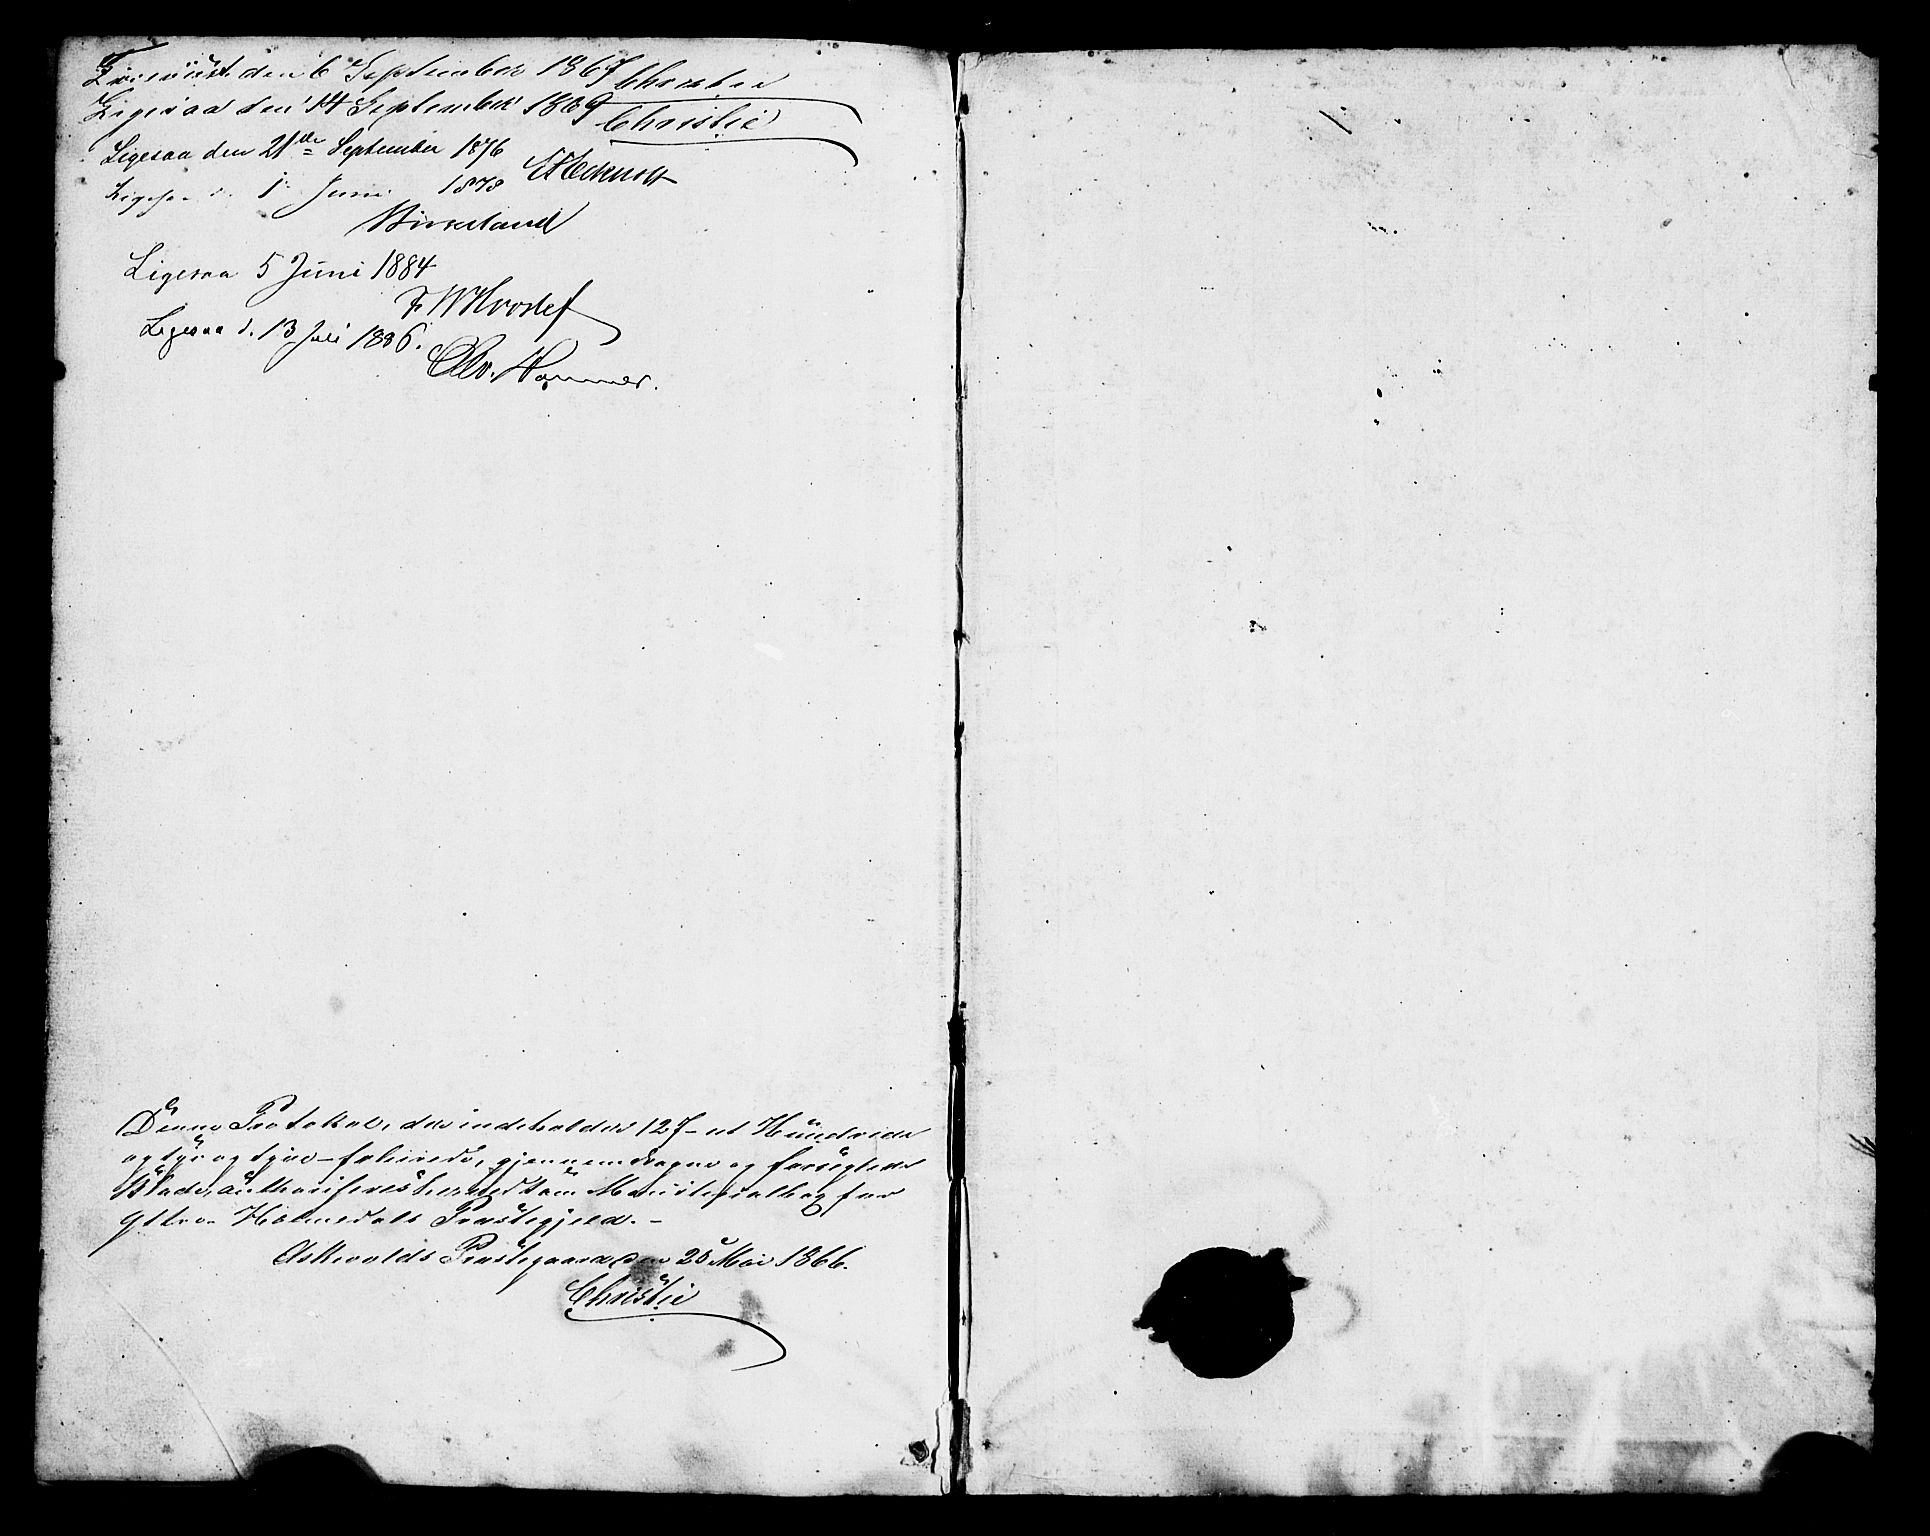 Foreviist den 6 September 1867 Christie
Ligesaa den 14 September 1869 Christie
Ligesaa den 21de September 1876
Ligesaa d. 1 Juni 1878
Birkeland
Ligesaa 5 Juni 1884
F W Hvoslef
Ligesaa d. 13 Juli 1886.
Hammer.
Denne Protokol, der indeholder 127 - et Hundrede
og syv og tyve - folierede, gjennemdragne og forseglede
Blade, authoriseres herved som Ministerialbog for
Yttre Holmedals Præstegjeld. -
Askevolds Præstegaard den 20 Mai 1866.
Christie